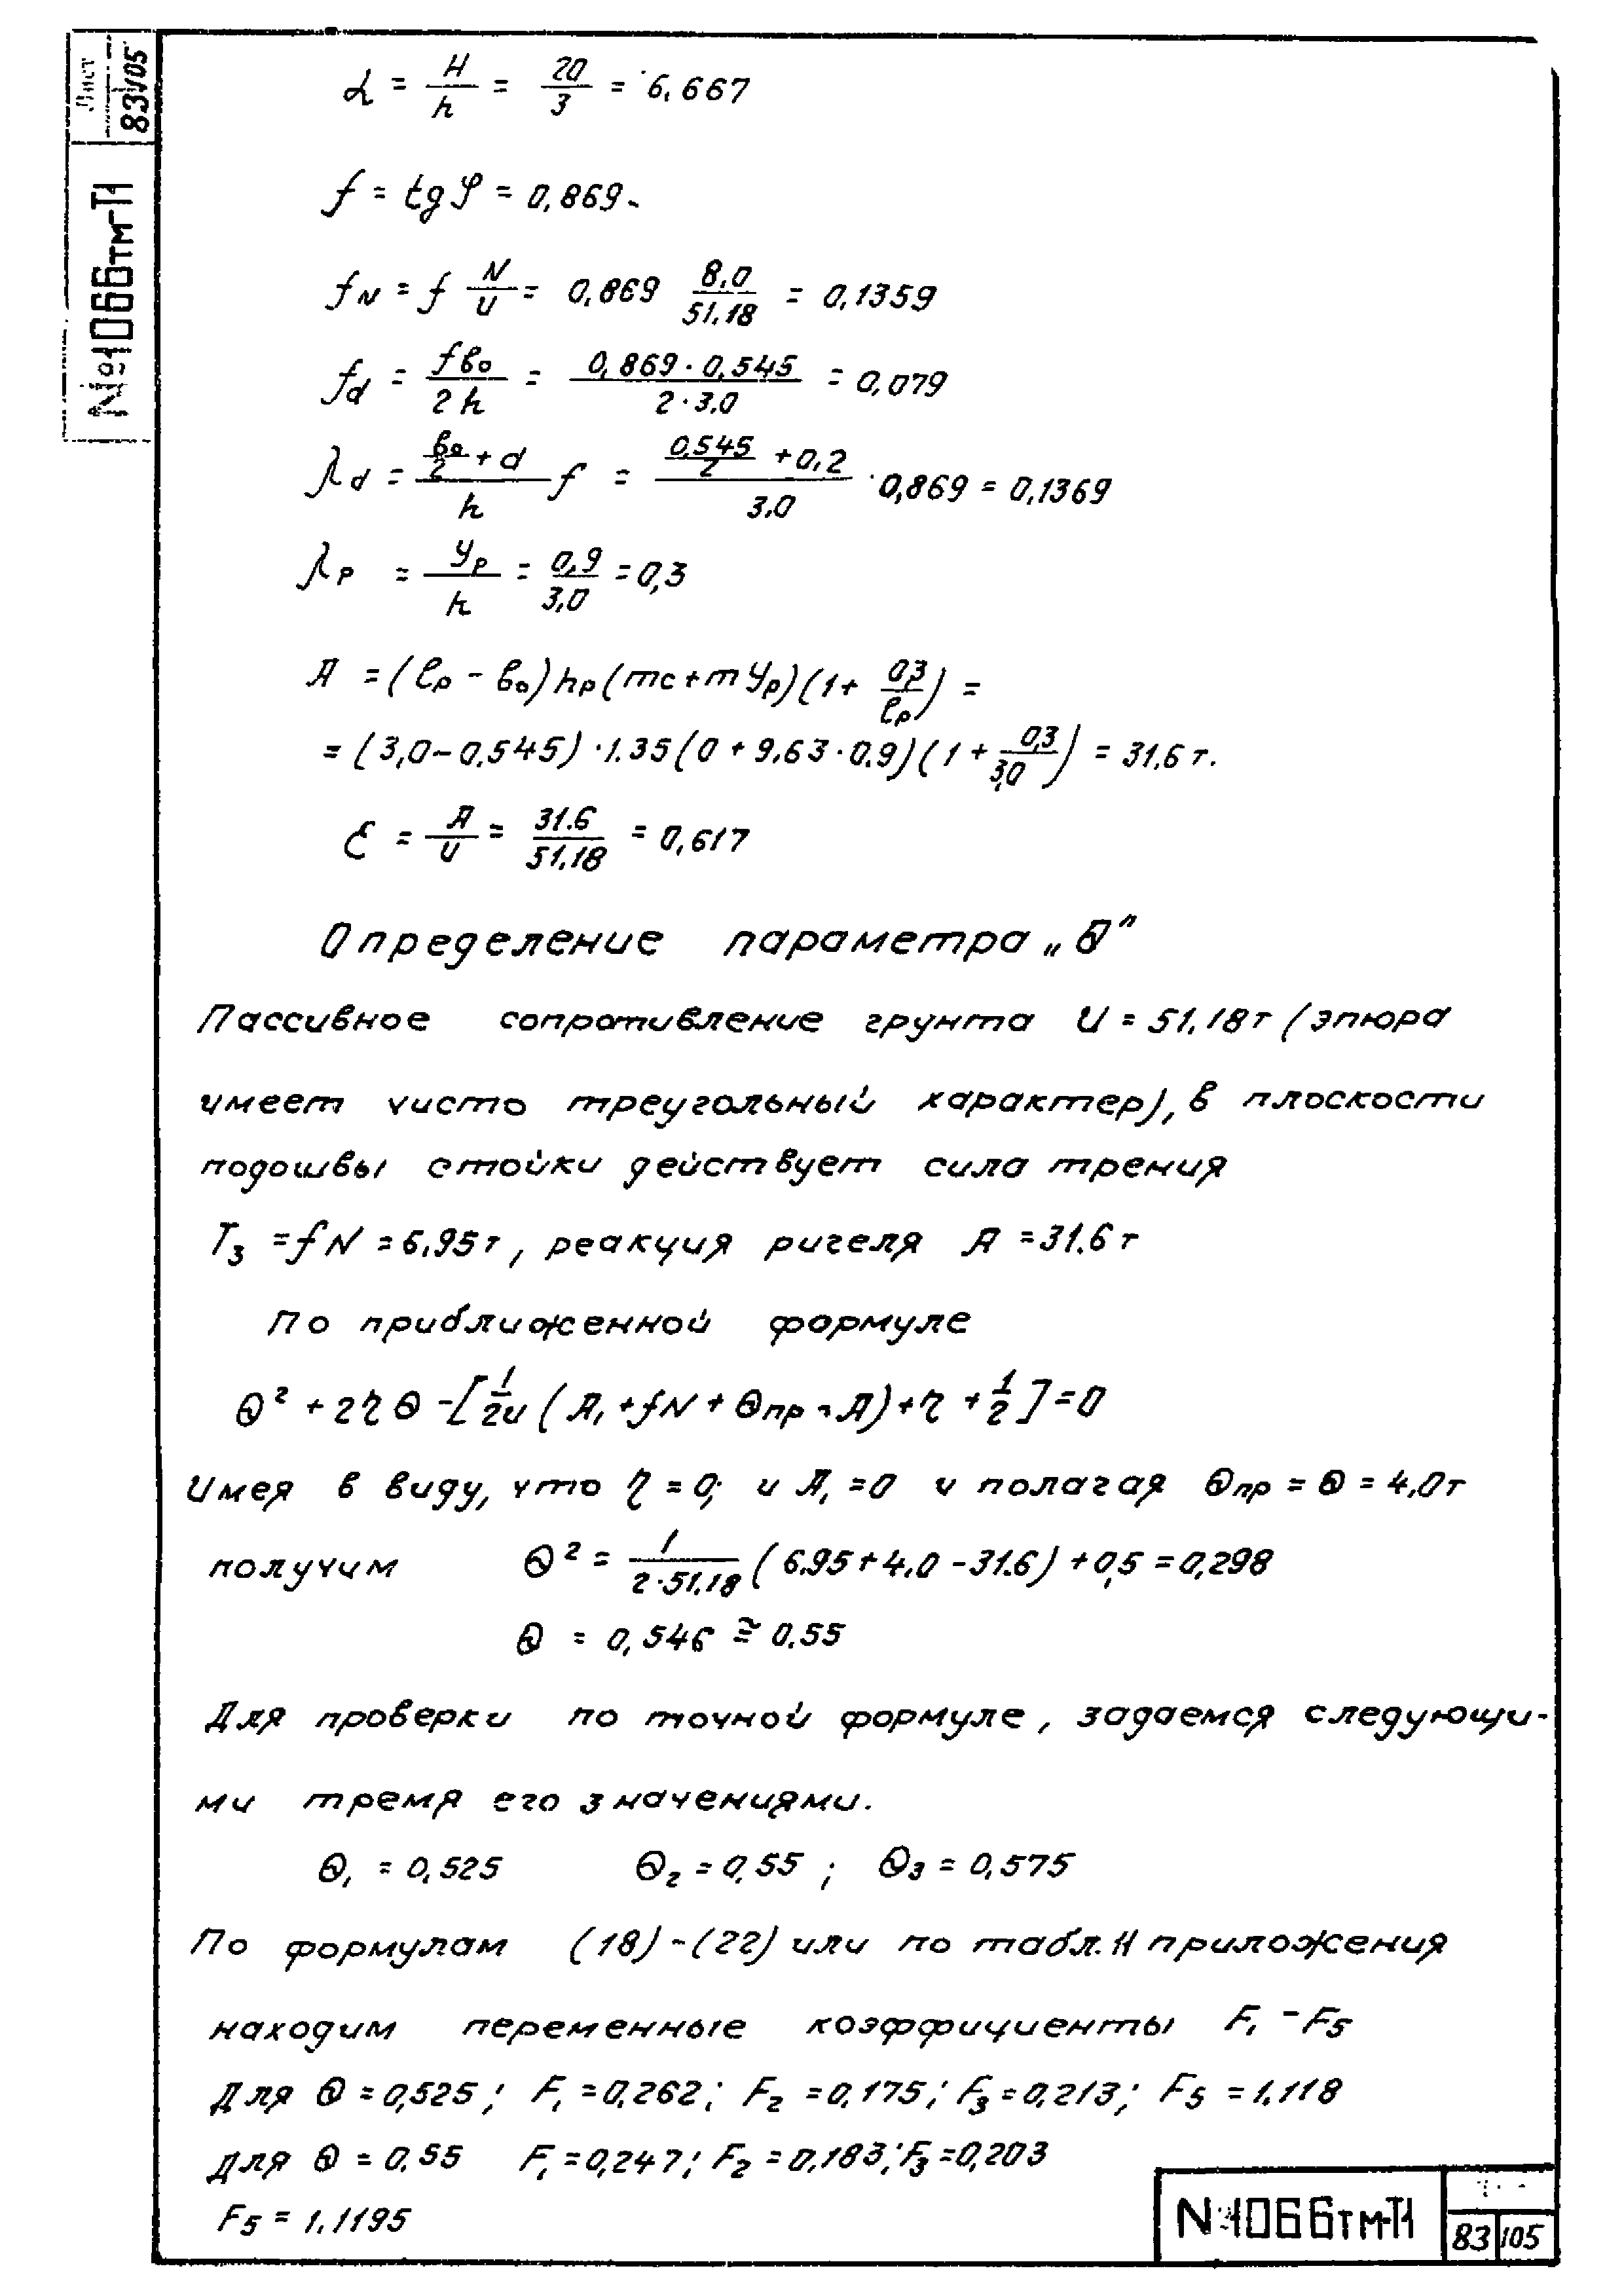 Лист
83 105
№1066тм-Т1
α = H/h = 20/3 = 6,667
f = tgφ = 0,869
fN = f N/u = 0,869 8,0/51,18 = 0,1359
fd = fв₀/2h = 0,869·0,545/2·3,0 = 0,079
λd = (в₀/2 + d)/h f = (0,545/2 + 0,2)/3,0 · 0,869 = 0,1369
λр = Ур/h = 0,9/3,0 = 0,3
А = (ℓр - в₀) hр (mc + m Ур)(1 + 0,3/ℓр) =
= (3,0 - 0,545)·1.35(0 + 9,63·0,9)(1 + 0,3/3,0) = 31,6 т.
ε = А/u = 31.6/51,18 = 0,617
Определение параметра „Θ"
Пассивное сопротивление грунта U = 51,18т (эпюра
имеет чисто треугольный характер), в плоскости
подошвы стойки действует сила трения
T₃ = fN = 6,95т, реакция ригеля А = 31.6 т
По приближенной формуле
Θ² + 2ηΘ - [1/2u (А₁ + fN + Qпр - А) + η + 1/2] = 0
Имея в виду, что η = 0; и А₁ = 0 и полагая Qпр = Q = 4,0т
получим Θ² = 1/2·51,18 (6.95 + 4,0 - 31.6) + 0,5 = 0,298
Θ = 0,546 ≅ 0.55
Для проверки по точной формуле, задаемся следующи-
ми тремя его значениями.
Θ₁ = 0,525 Θ₂ = 0,55 ; Θ₃ = 0,575
По формулам (18)-(22) или по табл. 11 приложения
находим переменные коэффициенты F₁ - F₅
Для Θ = 0,525; F₁ = 0,262; F₂ = 0,175; F₃ = 0,213; F₅ = 1,118
Для Θ = 0.55 F₁ = 0,247; F₂ = 0,183; F₃ = 0,203
F₅ = 1.1195
N 1066тм-Т1
83 105